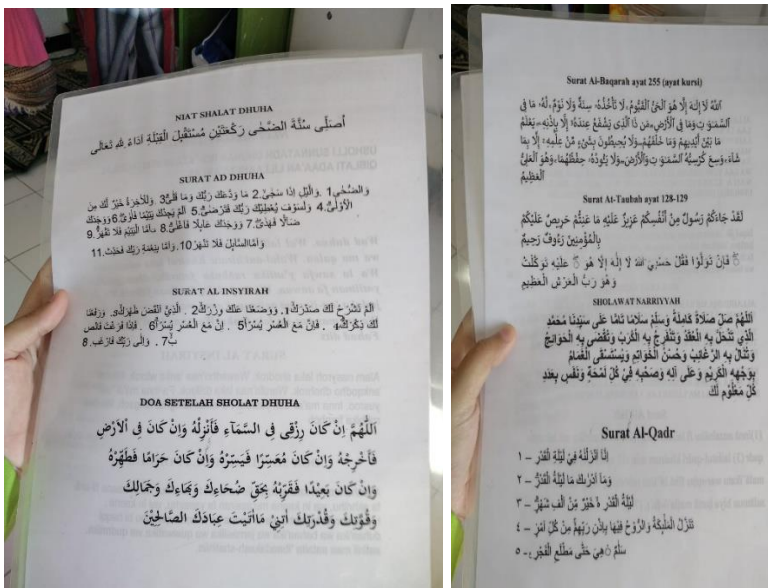 NIAT SHALAT DHUHA
اُصَلِّى سُنَّةَ الضُّحٰى رَكْعَتَيْنِ مُسْتَقْبِلَ الْقِبْلَةِ اَدَاءً لِلّٰهِ تَعَالٰى
SURAT AD DHUHA
وَالضُّحٰي1. وَالَّيْلِ اِذَا سَجٰى2. مَا وَدَّعَكَ رَبُّكَ وَمَا قَلٰى3. وَلَلْاٰخِرَةُ خَيْرٌ لَّكَ مِنَ
الْاُوْلٰى4. وَلَسَوْفَ يُعْطِيْكَ رَبُّكَ فَتَرْضٰى5. اَلَمْ يَجِدْكَ يَتِيْمًا فَاٰوٰى6. وَوَجَدَكَ
ضَاۤلًّا فَهَدٰى7. وَوَجَدَكَ عَاۤىِٕلًا فَاَغْنٰى8. فَاَمَّا الْيَتِيْمَ فَلَا تَقْهَرْ9.
وَاَمَّا السَّاۤىِٕلَ فَلَا تَنْهَرْ10. وَاَمَّا بِنِعْمَةِ رَبِّكَ فَحَدِّثْ.11
SURAT AL INSYIRAH
اَلَمْ نَشْرَحْ لَكَ صَدْرَكَ1. وَوَضَعْنَا عَنْكَ وِزْرَكَ2. الَّذِيْٓ اَنْقَضَ ظَهْرَكَ3. وَرَفَعْنَا
لَكَ ذِكْرَكَ4. فَاِنَّ مَعَ الْعُسْرِ يُسْرًا5. اِنَّ مَعَ الْعُسْرِ يُسْرًا6. فَاِذَا فَرَغْتَ فَانْصَ
بْ7. وَاِلٰى رَبِّكَ فَارْغَبْ.8
DOA SETELAH SHOLAT DHUHA
اَللّٰهُمَّ اِنْ كَانَ رِزْقِى فِى السَّمَآءِ فَأَنْزِلْهُ وَاِنْ كَانَ فِى اْلاَرْضِ
فَأَخْرِجْهُ وَاِنْ كَانَ مُعَسَّرًا فَيَسِّرْهُ وَاِنْ كَانَ حَرَامًا فَطَهِّرْهُ
وَاِنْ كَانَ بَعِيْدًا فَقَرِّبْهُ بِحَقِّ ضُحَاءِكَ وَبَهَاءِكَ وَجَمَالِكَ
وَقُوَّتِكَ وَقُدْرَتِكَ اٰتِنِىْ مَااٰتَيْتَ عِبَادَكَ الصَّالِحِيْنَ
Surat Al-Baqarah ayat 255 (ayat kursi)
اَللّٰهُ لَآ اِلٰهَ اِلَّا هُوَ الْحَيُّ الْقَيُّوْمُ ەۚ لَا تَأْخُذُهٗ سِنَةٌ وَّلَا نَوْمٌۗ لَهٗ مَا فِى
السَّمٰوٰتِ وَمَا فِى الْاَرْضِۗ مَنْ ذَا الَّذِيْ يَشْفَعُ عِنْدَهٗٓ اِلَّا بِاِذْنِهٖۗ يَعْلَمُ
مَا بَيْنَ اَيْدِيْهِمْ وَمَا خَلْفَهُمْۚ وَلَا يُحِيْطُوْنَ بِشَيْءٍ مِّنْ عِلْمِهٖٓ اِلَّا بِمَا
شَاۤءَۚ وَسِعَ كُرْسِيُّهُ السَّمٰوٰتِ وَالْاَرْضَۚ وَلَا يَـُٔوْدُهٗ حِفْظُهُمَاۚ وَهُوَ الْعَلِيُّ
الْعَظِيْمُ
Surat At-Taubah ayat 128-129
لَقَدْ جَاءَكُمْ رَسُولٌ مِنْ أَنْفُسِكُمْ عَزِيزٌ عَلَيْهِ مَا عَنِتُّمْ حَرِيصٌ عَلَيْكُمْ
بِالْمُؤْمِنِينَ رَءُوفٌ رَحِيمٌ
فَإِنْ تَوَلَّوْا فَقُلْ حَسْبِيَ اللَّهُ لَا إِلَٰهَ إِلَّا هُوَ ۖ عَلَيْهِ تَوَكَّلْتُ
وَهُوَ رَبُّ الْعَرْشِ الْعَظِيمِ
SHOLAWAT NARRIYYAH
اَللّٰهُمَّ صَلِّ صَلَاةً كَامِلَةً وَسَلِّمْ سَلَامًا تَامًّا عَلَى سَيِّدِنَا مُحَمَّدٍ
الَّذِي تَنْحَلُّ بِهِ الْعُقَدُ وَتَنْفَرِجُ بِهِ الْكُرَبُ وَتُقْضَى بِهِ الْحَوَائِجُ
وَتُنَالُ بِهِ الرَّغَائِبُ وَحُسْنُ الْخَوَاتِمِ وَيُسْتَسْقَى الْغَمَامُ
بِوَجْهِهِ الْكَرِيْمِ وَعَلَى آلِهِ وَصَحْبِهِ فِيْ كُلِّ لَمْحَةٍ وَنَفَسٍ بِعَدَدِ
كُلِّ مَعْلُوْمٍ لَكَ
Surat Al-Qadr
اِنَّآ اَنْزَلْنٰهُ فِيْ لَيْلَةِ الْقَدْرِ - ١
وَمَآ اَدْرٰىكَ مَا لَيْلَةُ الْقَدْرِۗ - ٢
لَيْلَةُ الْقَدْرِ ەۙ خَيْرٌ مِّنْ اَلْفِ شَهْرٍۗ - ٣
تَنَزَّلُ الْمَلٰۤىِٕكَةُ وَالرُّوْحُ فِيْهَا بِاِذْنِ رَبِّهِمْۚ مِنْ كُلِّ اَمْرٍۛ - ٤
سَلٰمٌ ۛهِيَ حَتّٰى مَطْلَعِ الْفَجْرِ - ٥